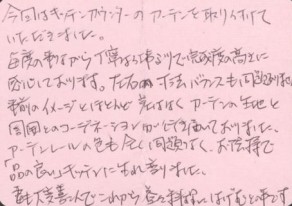 今回はキッチンカウンターのカーテンを取り付けて
いただきました。
毎度の事ながら丁寧なお造りで完成度の高さに
感心しております。左右の寸法バランスも問題なし
事前のイメージとほとんど差はなく カーテンの生地と
周囲とのコーデネーション
カーテンレールの色も全く問題なく、お陰様で
品の良いキッチンに生れ変りました。
妻も大変喜んでこれから益々料理にはげむとの事です